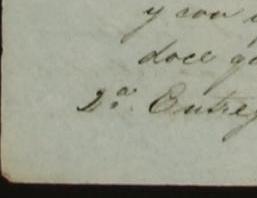 y con
doce
2.ª Entreg